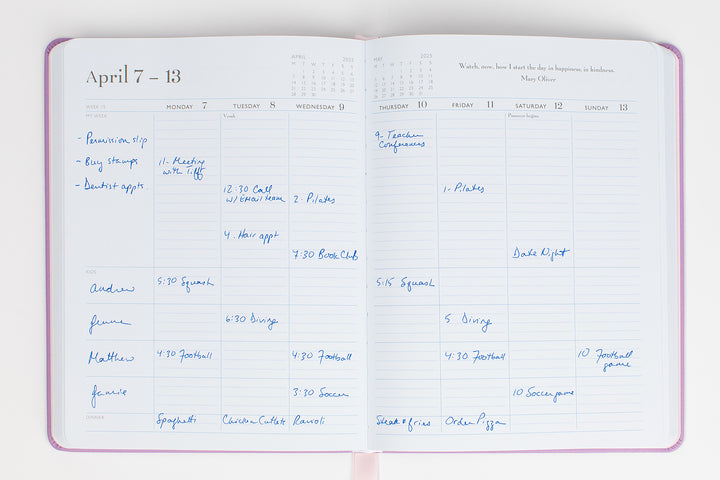 April 7 – 13
APRIL 2025
MAY 2025
Watch, now, how I start the day in happiness, in kindness.
Mary Oliver
WEEK 15
MONDAY 7
TUESDAY 8
WEDNESDAY 9
THURSDAY 10
FRIDAY 11
SATURDAY 12
SUNDAY 13
MY WEEK
Passover begins
- Permission slip
- Buy stamps
- Dentist appts.
11- Meeting
with Tiff
12:30 Call
w/ Email team
4. Hair appt
2. Pilates
7:30 Book Club
9- Teacher
Conferences
1- Pilates
Date Night
KIDS
Andrew
5:30 Squash
5:15 Squash
6:30 Diving
5 Diving
Matthew
4:30 Football
4:30 Football
4:30 Football
10 Football
game
Jamie
3:30 Soccer
10 Soccer game
DINNER
Spaghetti
Chicken Cutlets
Ravioli
Steak & fries
Order Pizza